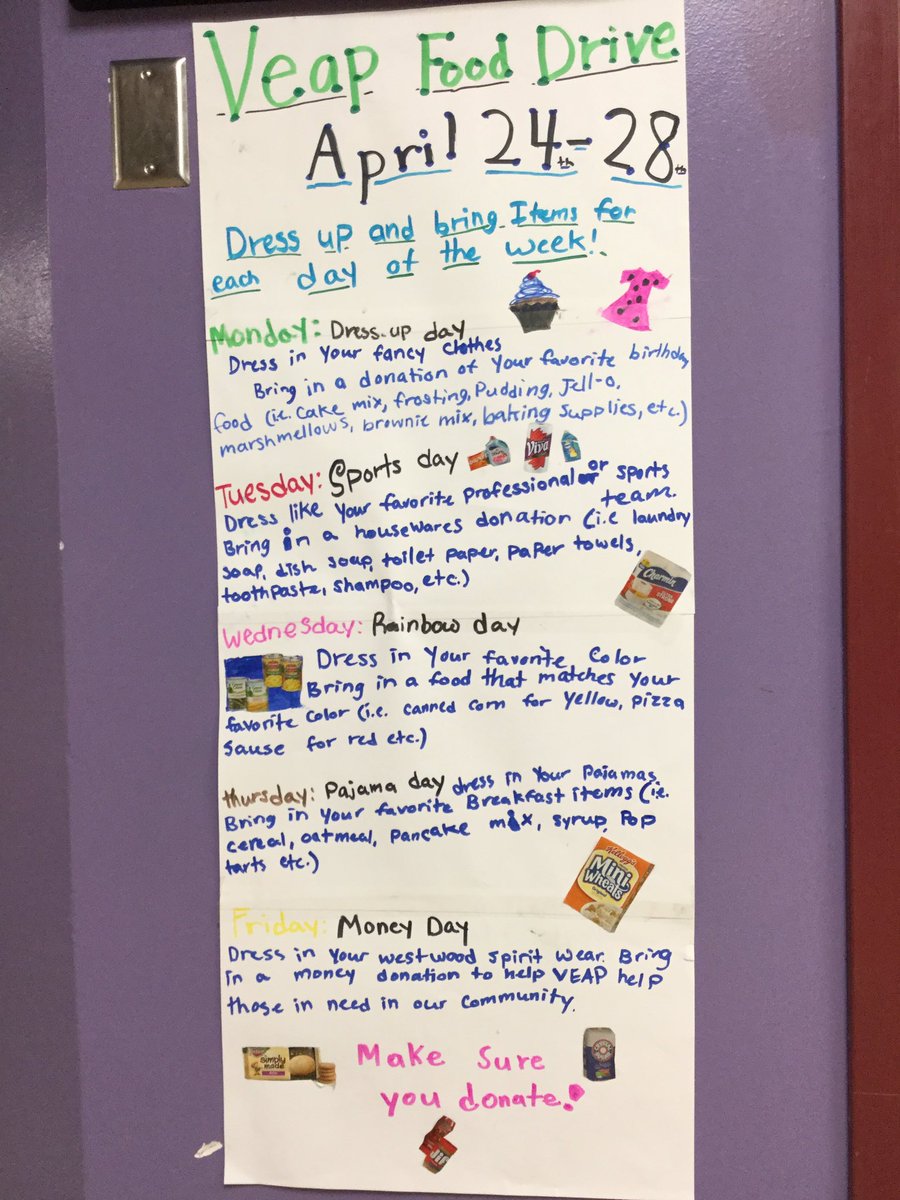 Veap Food Drive
April 24th-28th
Dress up and bring Items for
each day of the week!
Monday: Dress-up day
Dress in your fancy clothes
Bring in a donation of your favorite birthday
food (i.e. cake mix, frosting, Pudding, Jell-o,
marshmellows, brownie mix, baking supplies, etc.)
Tuesday: Sports day
Viva
Dress like your favorite professional or sports
team.
Bring in a housewares donation (i.e laundry
soap, dish soap, toilet paper, paper towels,
toothpaste, shampoo, etc.)
Charmin
Wednesday: Rainbow day
Dress in your favorite color
Bring in a food that matches your
favorite color (i.e. canned corn for yellow, pizza
sause for red etc.)
thursday: Pajama day dress in your Pajamas
Bring in your favorite Breakfast items (i.e.
cereal, oatmeal, pancake mix, syrup, Pop
tarts etc.)
Kellogg's
Mini
Wheats
Friday: Money Day
Dress in your westwood spirit wear. Bring
in a money donation to help VEAP help
those in need in our community.
simply
made
Make sure
you donate!
Jif